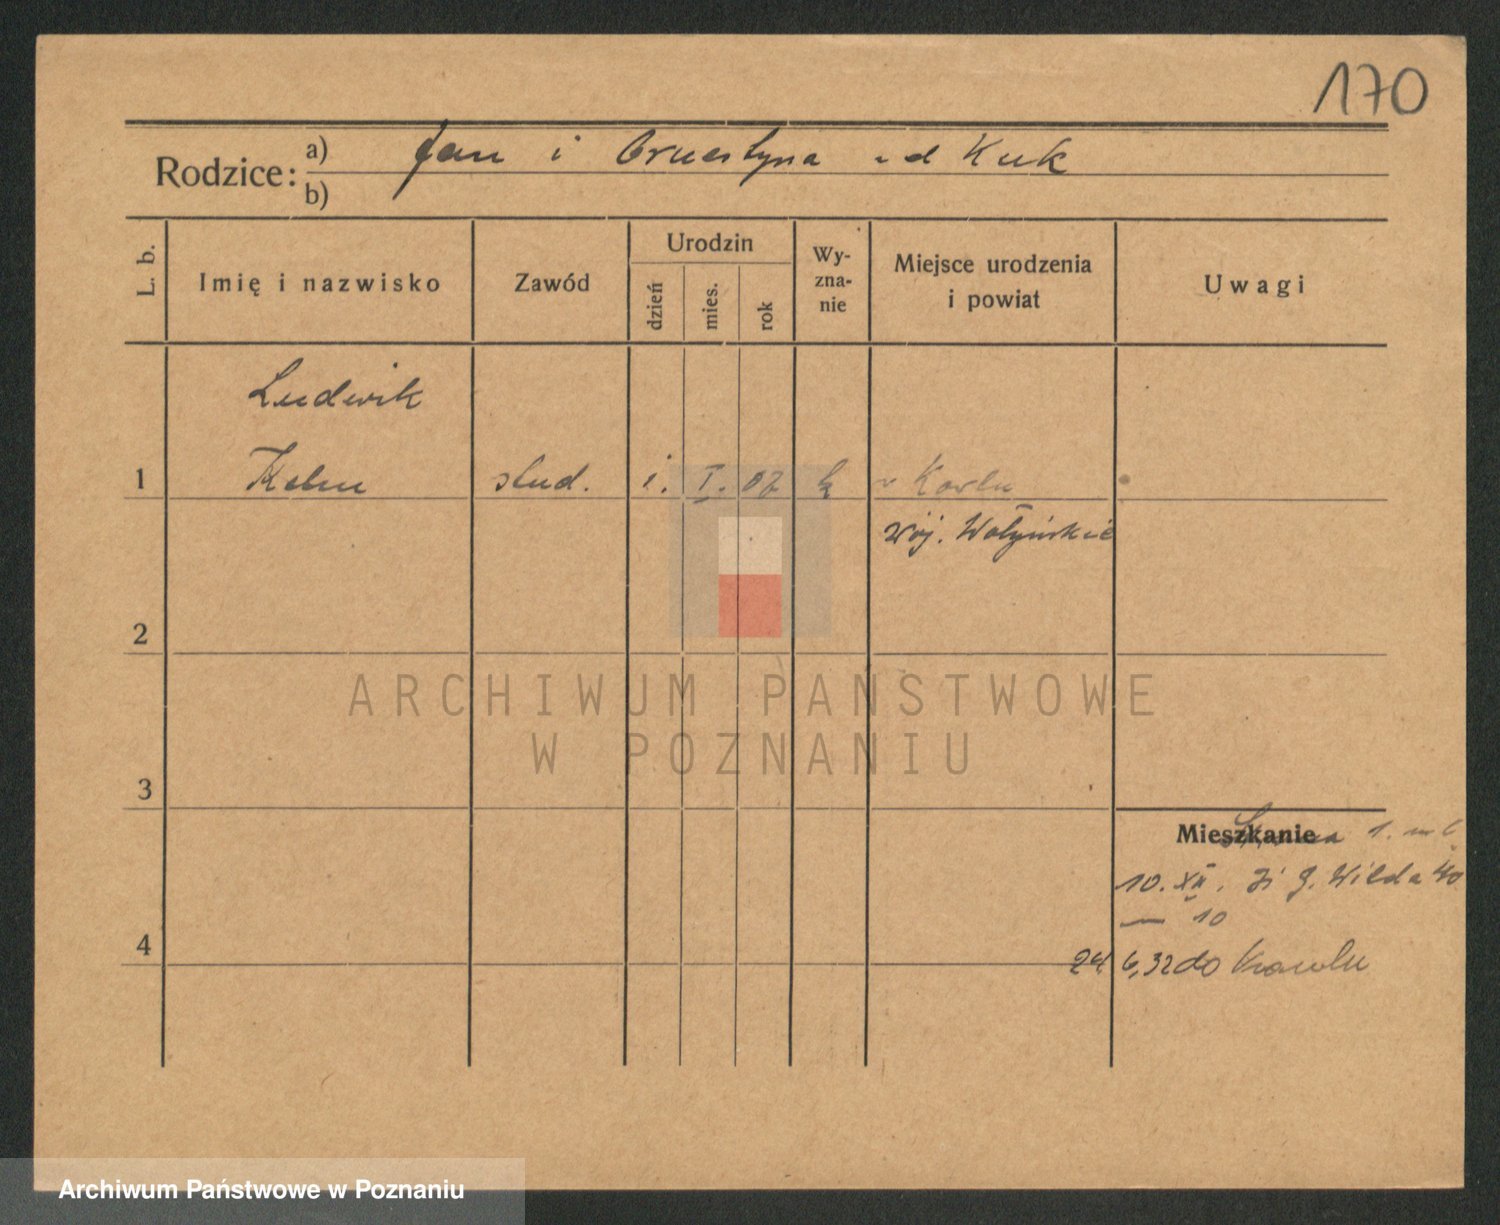 170
Rodzice: a) Jan i Ernestyna z d Kuk
b)
L. b.
Imię i nazwisko
Zawód
Urodzin
dzień
mies.
rok
Wy-
zna-
nie
Miejsce urodzenia
i powiat
Uwagi
Ludwik
1 stud. 1. I. 07 w Kowlu
woj. Wołyńskie
2
ARCHIWUM PAŃSTWOWE
W POZNANIU
3
Mieszkanie
10. XII. G. Wilda 40
— 10
4
24 6,32 do Kowlu
Archiwum Państwowe w Poznaniu